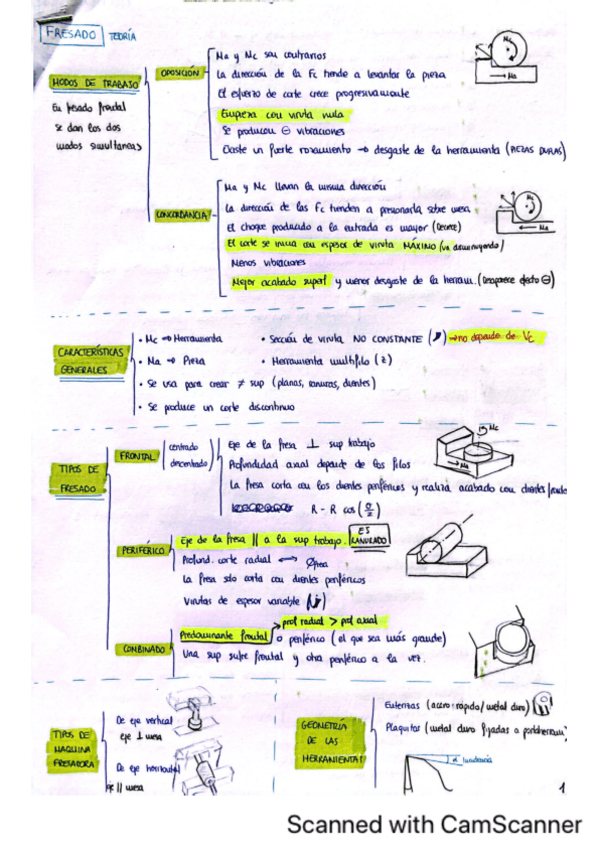 FRESADO TEORÍA
MODOS DE TRABAJO
En fresado frontal
se dan los dos
modos simultáneas
OPOSICIÓN
Ma y Mc son contrarios
La dirección de la Fc tiende a levantar la pieza
El esfuerzo de corte crece progresivamente
Empieza con viruta nula
Se producen ⊖ vibraciones
Existe un fuerte rozamiento → desgaste de la herramienta (PIEZAS DURAS)
Mc
Ma
CONCORDANCIA
Ma y Mc llevan la misma dirección
La dirección de las Fc tienden a presionarla sobre mesa
El choque producido a la entrada es mayor (Decrece)
El corte se inicia con espesor de viruta MAXIMO (va disminuyendo)
Menos vibraciones
Mejor acabado superf y menor desgaste de la herram. (Desaparece efecto ⊖)
Mc
Ma
CARACTERÍSTICAS
GENERALES
• Mc → Herramienta
• Ma → Pieza
• Se usa para crear ≠ sup (planas, ranuras, dientes)
• Se produce un corte discontinuo
• Sección de viruta NO CONSTANTE → no depende de Vc
• Herramienta multifilo (z)
TIPOS DE
FRESADO
FRONTAL
centrado
descentrado
Eje de la fresa ⊥ sup trabajo
Profundidad axial depende de los filos
La fresa corta con los dientes periféricos y realiza acabado con dientes
R - R cos
Mc
Ma
PERIFÉRICO
Eje de la fresa || a la sup trabajo.
ES
RANURADO
Profund. corte radial ↔ Ø fresa
La fresa solo corta con dientes periféricos
Virutas de espesor variable
prof radial > prof axial
COMBINADO
Predominante frontal o periférico (el que sea más grande)
Una sup sufre frontal y otra periférico a la vez.
TIPOS DE
MAQUINA
FRESADORA
De eje vertical
eje ⊥ mesa
De eje horizontal
eje || mesa
GEOMETRÍA
DE LAS
HERRAMIENTAS
Enterizas (acero rápido/metal duro)
Plaquitas (metal duro fijadas a portaherram)
incidencia
1
Scanned with CamScanner